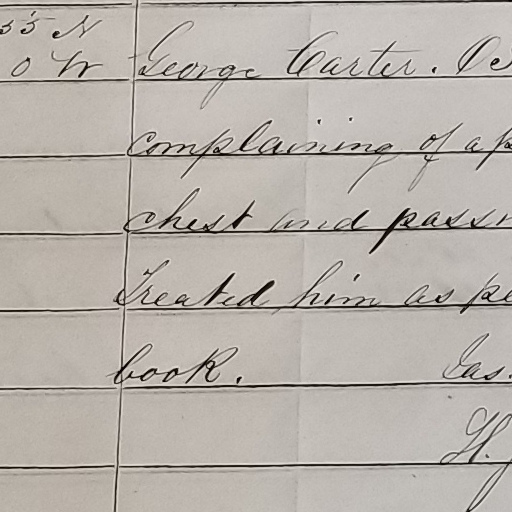 55 N
0 W George Carter. OS
complaining of a p
chest and pass
Treated him as pe
book. Jas.
H.